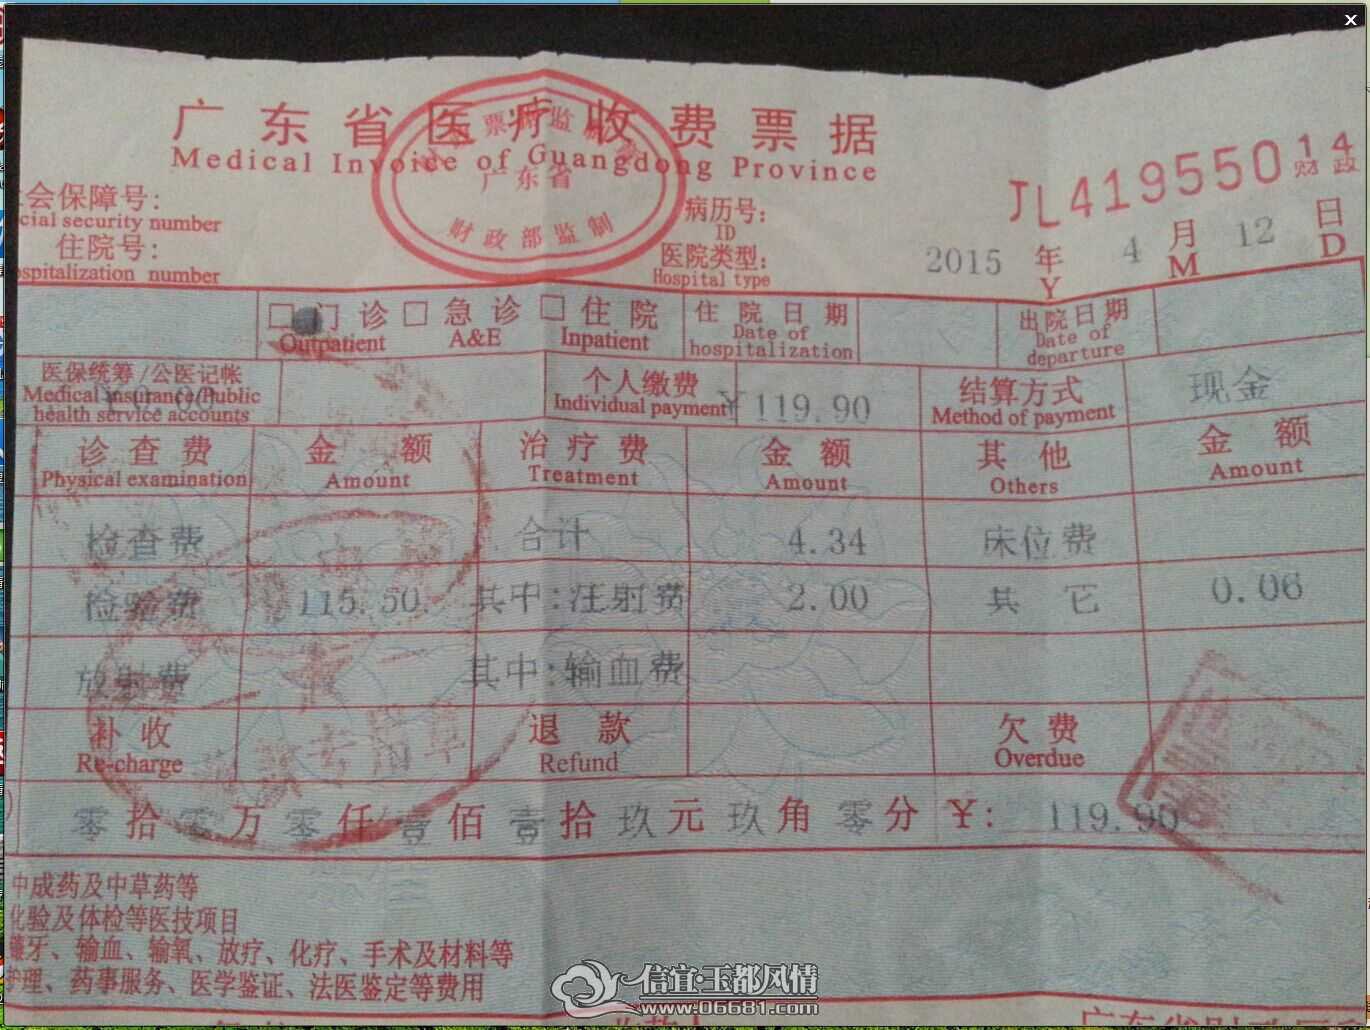 广东省医疗收费票据
Medical Invoice of Guangdong Province
广东省
财政部监制
JL41955014
财政
会保障号:
cial security number
病历号:
ID
住院号:
ospitalization number
医院类型:
Hospital type
2015 年 4 月 12 日
Y M D
□ 门诊 □ 急诊 □ 住院 住院日期 出院日期
Outpatient A&E Inpatient Date of hospitalization Date of departure
医保统筹/公医记帐 个人缴费 ¥119.90 结算方式 现金
Medical insurance/Public health service accounts Individual payment Method of payment
诊查费 金额 治疗费 金额 其他 金额
Physical examination Amount Treatment Amount Others Amount
检查费 合计 4.34 床位费
检验费 115.50 其中:注射费 2.00 其它 0.06
放射费 其中:输血费
补收 退款 欠费
Re-charge Refund Overdue
零拾零万零仟壹佰壹拾玖元玖角零分 ¥: 119.90
中成药及中草药等
化验及体检等医技项目
镶牙、输血、输氧、放疗、化疗、手术及材料等
护理、药事服务、医学鉴证、法医鉴定等费用
信宜·玉都风情
www.06681.com